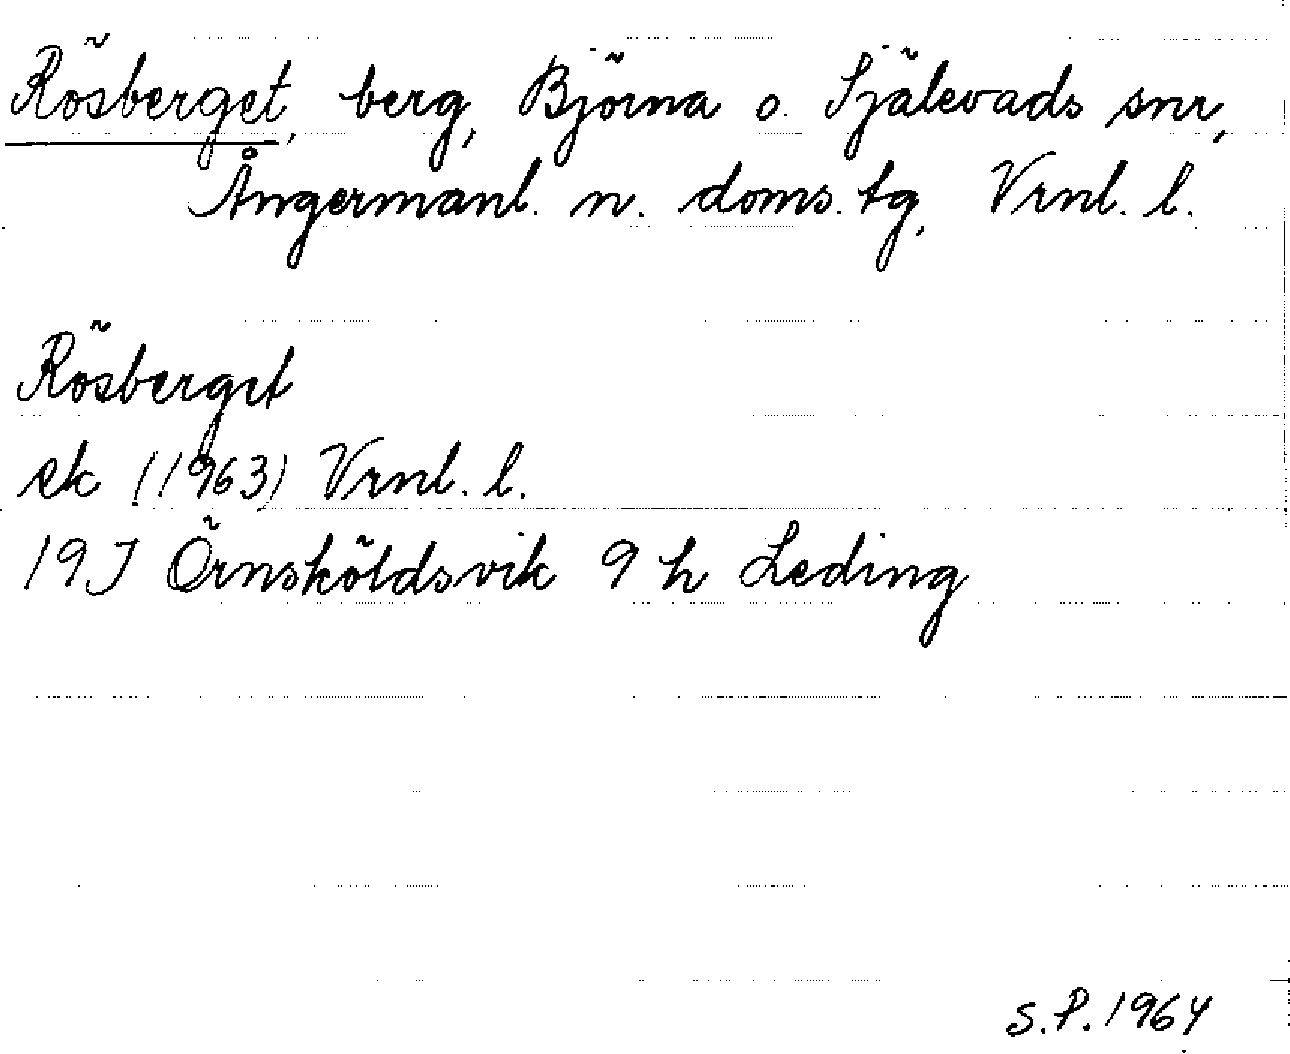 Rösberget, berg, Björna o. Själevads snr,
Ångermanl. n. doms. tg, Vrnl. l.
Rösberget
ek (1963) Vrnl. l.
19J Örnsköldsvik 9 h Leding
S.P. 1964